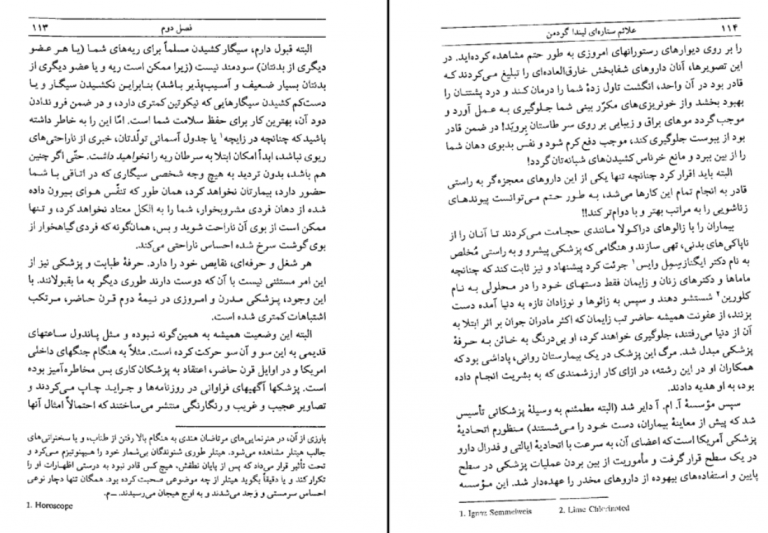 ۱۱۳
فصل دوم
البته قبول دارم، سیگار کشیدن مسلماً برای ریه‌های شما (یا هر عضو
دیگری از بدنتان) سودمند نیست (زیرا ممکن است ریه و یا عضو دیگری از
بدنتان بسیار ضعیف و آسیب‌پذیر باشد) بنابراین نکشیدن سیگار و یا
دست‌کم کشیدن سیگارهایی که نیکوتین کمتری دارد، و در ضمن فرو ندادن
دود آن، بهترین کار برای حفظ سلامت شما است. امّا این را به خاطر داشته
باشید که چنانچه در زایچه۱ یا جدول آسمانی تولّدتان، خبری از ناراحتی‌های
ریوی نباشد، ابداً امکان ابتلا به سرطان ریه را نخواهید داشت. حتّی اگر چنین
هم باشد، بدون تردید به هیچ وجه شخصی سیگاری که در اتاقی با شما
حضور دارد، بیمارتان نخواهد کرد، همان طور که تنفّس هوای بیرون داده
شده از دهان فردی مشروبخوار، شما را به الکل معتاد نخواهد کرد، و تنها
ممکن است از بوی آن ناراحت شوید و بس، همان‌گونه که فردی گیاهخوار از
بوی گوشت سرخ شده احساس ناراحتی می‌کند.
هر شغل و حرفه‌ای، نقایص خود را دارد. حرفهٔ طبابت و پزشکی نیز از
این امر مستثنی نیست با آن که دوست دارند طوری دیگر به ما بقبولانند. با
این وجود، پزشکی مدرن و امروزی در نیمهٔ دوم قرن حاضر، مرتکب
اشتباهات کمتری شده است.
البته این وضعیت همیشه به همین‌گونه نبوده و مثل پاندول ساعتهای
قدیمی به این سو و آن سو حرکت کرده است. مثلاً به هنگام جنگهای داخلی
امریکا و در اوایل قرن حاضر، اعتقاد به پزشکان کاری بس مخاطره‌آمیز بوده
است. پزشکها آگهیهای فراوانی در روزنامه‌ها و جراید چاپ می‌کردند و
تصاویر عجیب و غریب و رنگارنگی منتشر می‌ساختند که احتمالاً امثال آنها
بارزی از آن، در هنرنمایی‌های مرتاضان هندی به هنگام بالا رفتن از طناب، و یا سخنرانی‌های
جالب هیتلر مشاهده می‌شود. هیتلر طوری شنوندگان بی‌شمار خود را هیپنوتیزم می‌کرد و
تحت تأثیر قرار می‌داد که پس از پایان نطقش، هیچ کس قادر نبود به درستی اظهارات او را
تکرار کند و یا دقیقاً بگوید هیتلر از چه موضوعی صحبت کرده بود. همگان تنها دچار نوعی
احساس سرمستی و وَجد می‌شدند و به اوج هیجان می‌رسیدند. ــ م.
1. Horoscope
۱۱۴
علائم ستاره‌ای لیندا گودمن
را بر روی دیوارهای رستورانهای امروزی به طور حتم مشاهده کرده‌اید. در
این تصویرها، آنان داروهای شفابخش خارق‌العاده‌ای را تبلیغ می‌کردند که
قادر بود در آن واحد، انگشت تاول زدهٔ شما را درمان کند و درد پشتتان را
بهبود بخشد واز خونریزی‌های مکرّر بینی شما جلوگیری به عمل آورد و
موجب گردد موهای براق و زیبایی بر روی سر طاستان بروید! در ضمن قادر
بود از یبوست جلوگیری کند، موجب دفع کرم شود و نفس بدبوی دهان شما
را از بین ببرد و مانع خرناس کشیدن‌های شبانه‌تان گردد!
البته باید اقرار کرد چنانچه تنها یکی از این داروهای معجزه‌گر به راستی
قادر به انجام تمام این کارها می‌شد، به طور حتم می‌توانست پیوندهای
زناشویی را به مراتب بهتر و با دوام‌تر کند!!
بیماران را با زالوهای دراکولا مانندی حجامت می‌کردند تا آنان را از
ناپاکی‌های بدنی، تهی سازند و هنگامی که پزشکی پیشرو و به راستی مُخلص
به نام دکتر ایگنازسِمِل وایس۱ جرئت کرد پیشنهاد و نیز ثابت کند که چنانچه
ماماها و دکترهای زنان و زایمان فقط دستهای خود را در محلولی به نام
کلورین۲ شستشو دهند و سپس به زائوها و نوزادان تازه به دنیا آمده دست
بزنند، از عفونت همیشه حاضر تب زایمان که اکثر مادران جوان بر اثر ابتلا به
آن از دنیا می‌رفتند، جلوگیری خواهند کرد، او بی‌درنگ به خائن به حرفهٔ
پزشکی مبدل شد. مرگ این پزشک در یک بیمارستان روانی، پاداشی بود که
همکاران او در این رشته، در ازای کار ارزشمندی که به بشریت انجام داده
بود، به او هدیه دادند.
سپس مؤسسهٔ آ. ام. آ دایر شد (البته مطمئنم به وسیلهٔ پزشکانی تأسیس
شد که پیش از معاینهٔ بیماران، دست خود را می‌شستند) منظورم اتحادیهٔ
پزشکی آمریکا است که اعضای آن، به سرعت با اتحادیهٔ ایالتی و فدرال دارو
در یک سطح قرار گرفت و مأموریت از بین بردن عملیات پزشکی در سطح
پایین و استفاده‌های بیهوده از داروهای مخدر را عهده‌دار شد. این مؤسسه
1. Ignaz Semmelweis
2. Lime Chlorinated